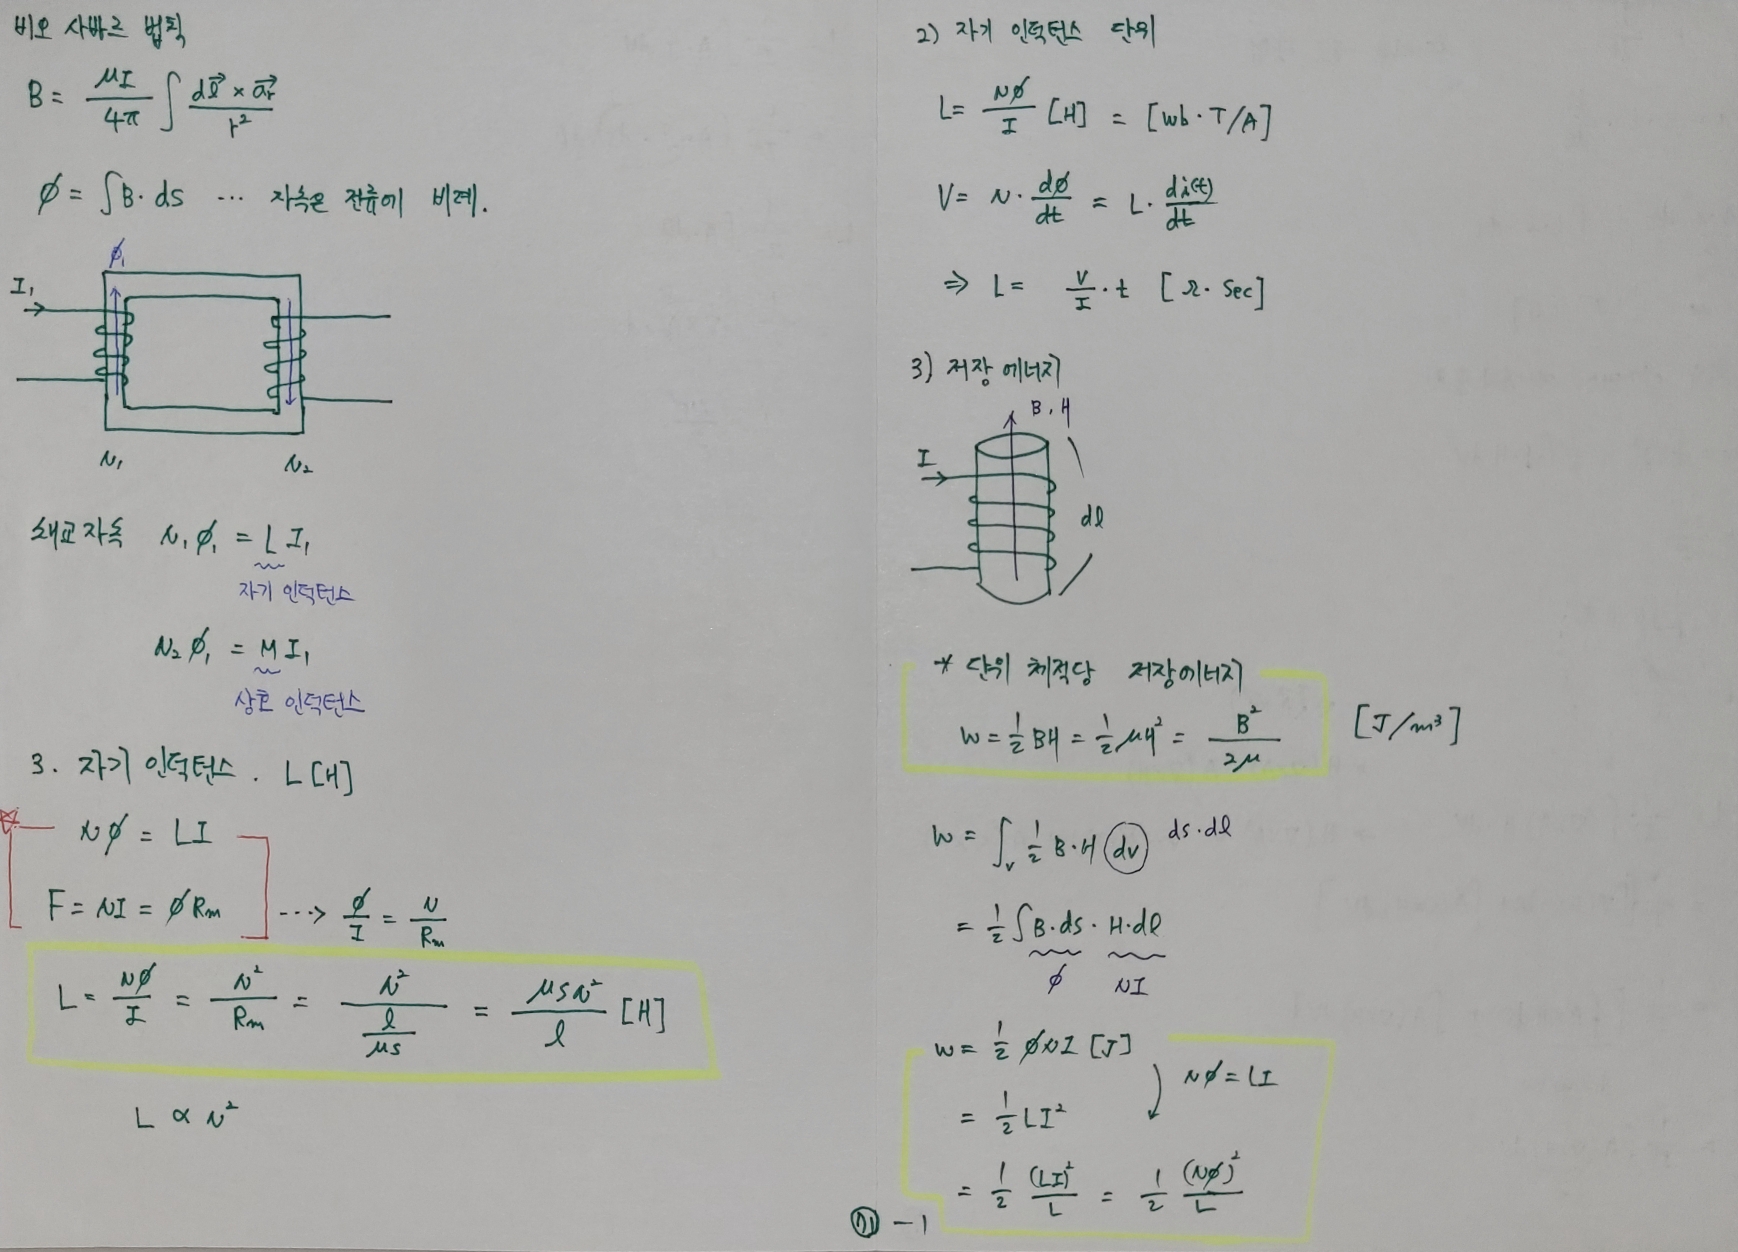 비오 사바르 법칙
B = μI/4π ∫ dl⃗ × a⃗r / r²
ø = ∫B·ds ... 자속은 전류에 비례.
ø₁
I₁
N₁ N₂
쇄교자속 N₁ø₁ = L I₁
자기 인덕턴스
N₂ø₁ = M I₁
상호 인덕턴스
3. 자기 인덕턴스. L[H]
Nø = LI
F = NI = øRm ...> ø/I = N/Rm
L = Nø/I = N²/Rm = N²/(l/μs) = μsN²/l [H]
L ∝ N²
2) 자기 인덕턴스 단위
L = Nø/I [H] = [wb·T/A]
V = N·dø/dt = L·di(t)/dt
⇒ L = V/I·t [Ω·Sec]
3) 저장 에너지
B, H
I
dl
* 단위 체적당 저장에너지
W = ½BH = ½μH² = B²/2μ [J/m³]
W = ∫v ½ B·H dv ds·dl
= ½∫B·ds·H·dl
ø NI
W = ½ øNI [J]
Nø = LI
= ½LI²
= ½ (LI)²/L = ½ (Nø)²/L
- 1